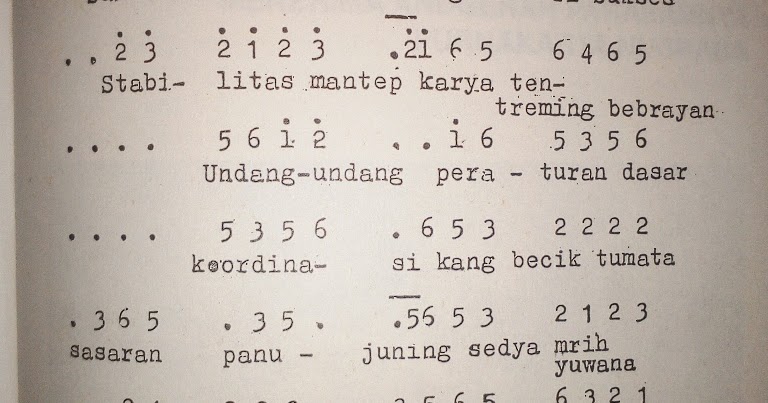 . . 2̇ 3̇  2̇ 1̇ 2̇ 3̇  .2̇1̇ 6 5  6 4 6 5
Stabi- litas mantep karya ten-
treming bebrayan
. . . .  5 6 1̇ 2̇  . . 1̇ 6  5 3 5 6
Undang-undang pera - turan dasar
. . . .  5 3 5 6  . 6 5 3  2 2 2 2
koordina- si kang becik tumata
. 3 6 5  . 3 5 .  .56 5 3  2 1 2 3
sasaran panu - juning sedya mrih
yuwana
6 5  6 3 2 1